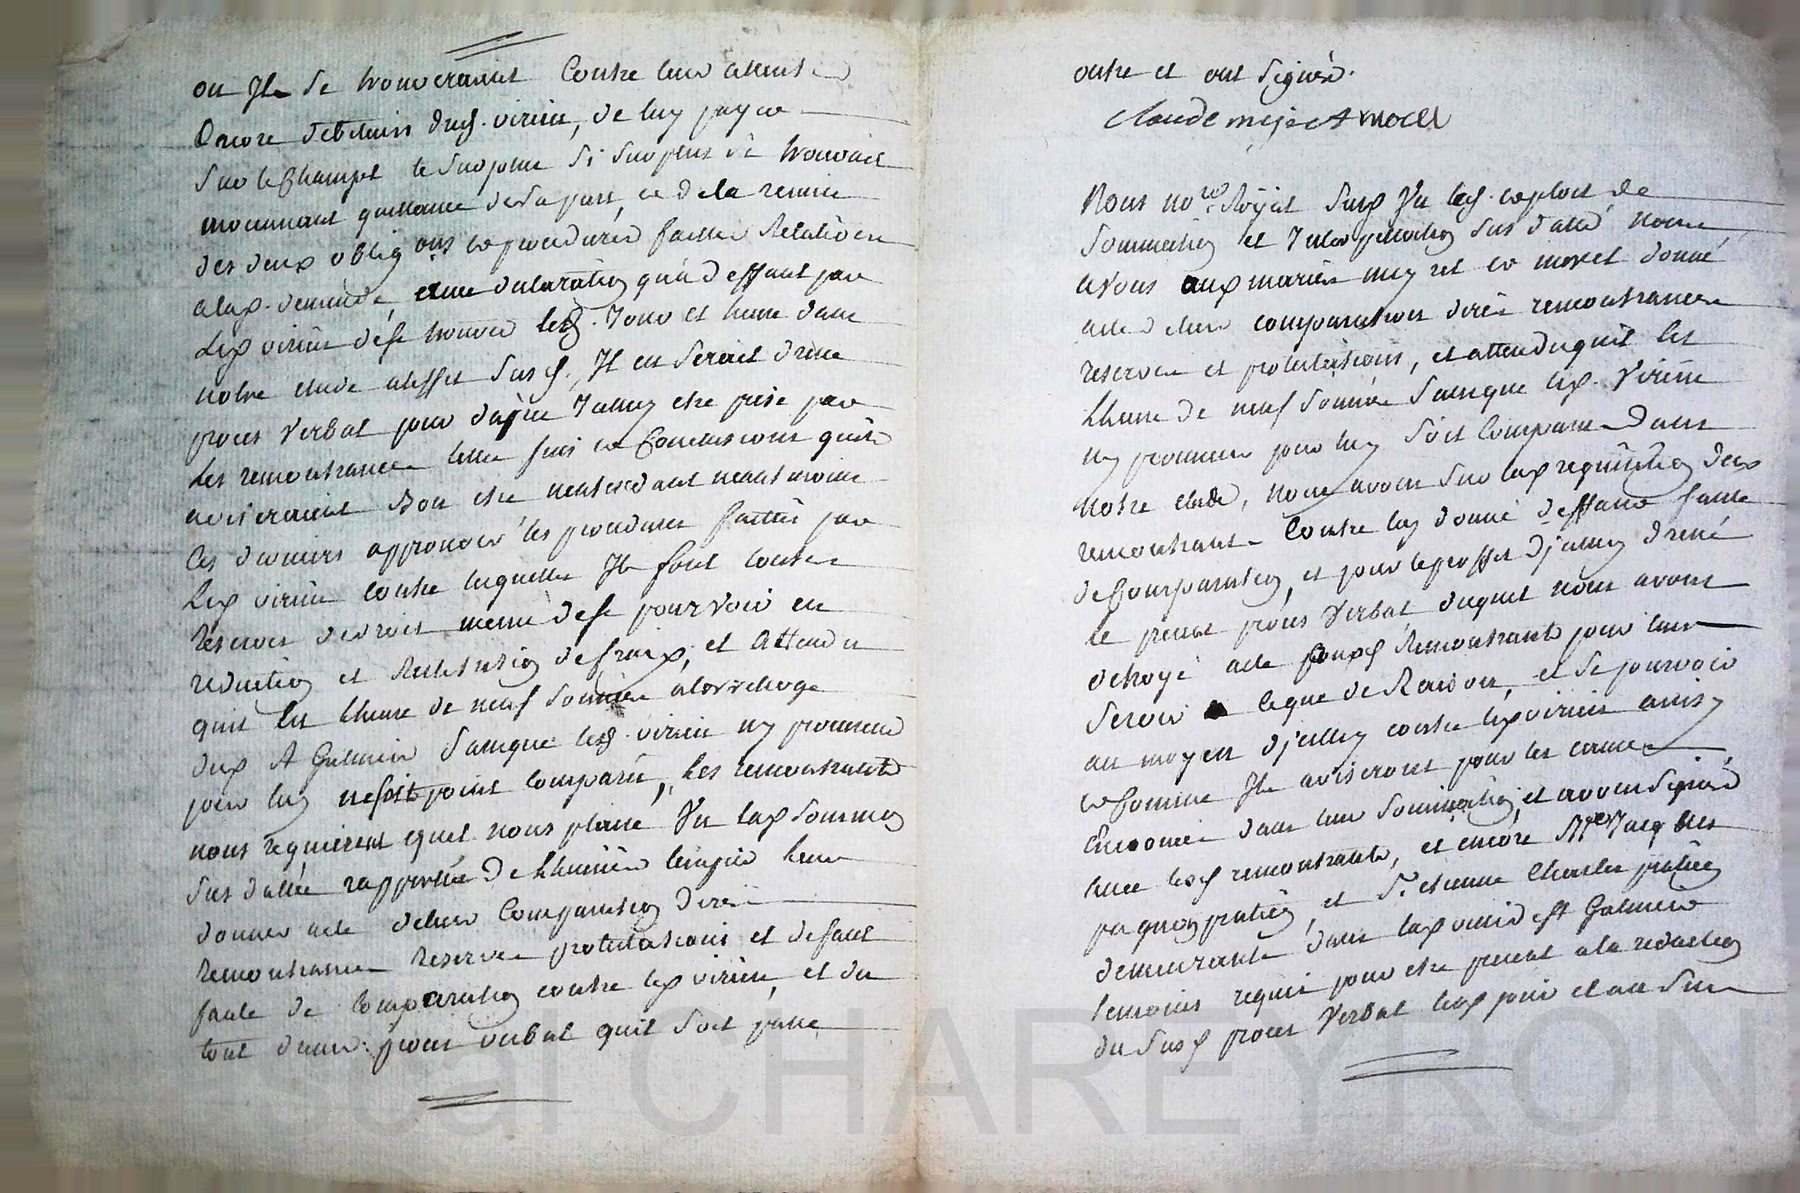 ou Ils se trouveraient Contre leur attente
Encore debiteurs dud. virieu, de luy payer
sur le Champt le surplus si surplus se trouvait
moyennant quittance de sa part, et de la remise
des deux obligons et procedures faittes Relatives
a lad. demande, avec declaration qu'a deffaut par
led virieu de se trouver lesd. Jour et heure dans
notre etude a leffet susd., Il en serait dressé
procès verbal pour d'apres Iceluy etre prise par
les remontrances telles fins et Conclusions qu'ils
aviseraient Bon etre n'entendant neantmoins
Ces derniers approuver les procedures faittes par
led virieu contre lesquelles Ils font toutes
reserves de droit meme de se pourvoir en
reduction et Restitution de fraix, et Attendu
quil est lheure de neuf sonnée a lorreloge
dud St Galmier sans que led. virieu ny personne
pour luy ne soit point comparu, les remontrants
nous requierent quil nous plaise Vu lad sommaon
sus dattée rapportée de lhuissier leur
donner acte de leur Comparution dires
Remontrances Reserves protestations et defaut
faute de Comparution contre led virieu, et du
tout dresser procès verbal quil soit passé
outre et ont signés.
Claude mejeAmocel
Nous nore Royal susd Vu led. exploit de
Sommation et Interpellation sus datté, nous
avons aux mariés et donné
acte de leurs comparution dires remontrances
reserves et protestations, et attendu quil est
lheure de neuf sonnée sans que led. Virieu
ny personne pour luy soit Comparu Dans
notre etude, nous avons sur lad requisition desd
remontrants Contre luy donné deffaut faute
de Comparution, et pour le proffit d'iceluy dressé
le present procès Verbal, duquel nous avons
octroyé acte auxd Remontrants pour leur
servir ce que de Raison, et se pourvoir
au moyen d'iceluy contre led virieu ainsy
et Comme Ils aviseront pour les causes
Enoncées dans leur sommation, et avons signé
avec lesd remontrants, et encore Mre Jacques
praticien, et sr. etienne Charles praticien
demeurants dans lad ville de St Galmier
temoins requis pour etre present a la redaction
du susd procès Verbal lesd jour et an sus